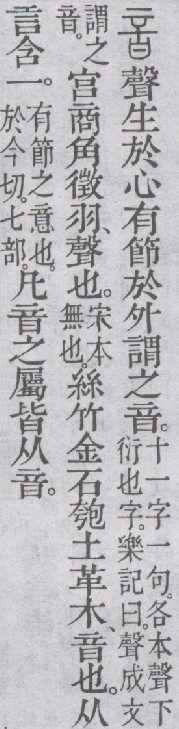 音聲生於心有節於外謂之音。十一字一句。各本聲下衍也字。樂記曰。聲成文
謂之音。宫商角徵羽、聲也。宋本無也。絲竹金石匏土革木、音也。从
言含一。有節之意也。於今切。七部。凡音之屬皆从音。